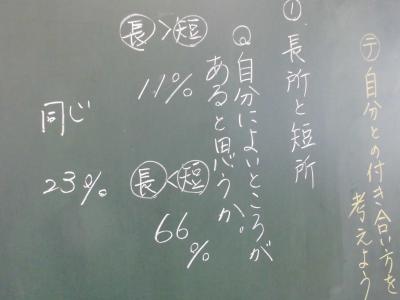 ㋢自分との付き合い方を
考えよう
①.長所と短所
Q自分によいところが
あると思うか。
長>短
11%
長<短
66%
同じ
23%